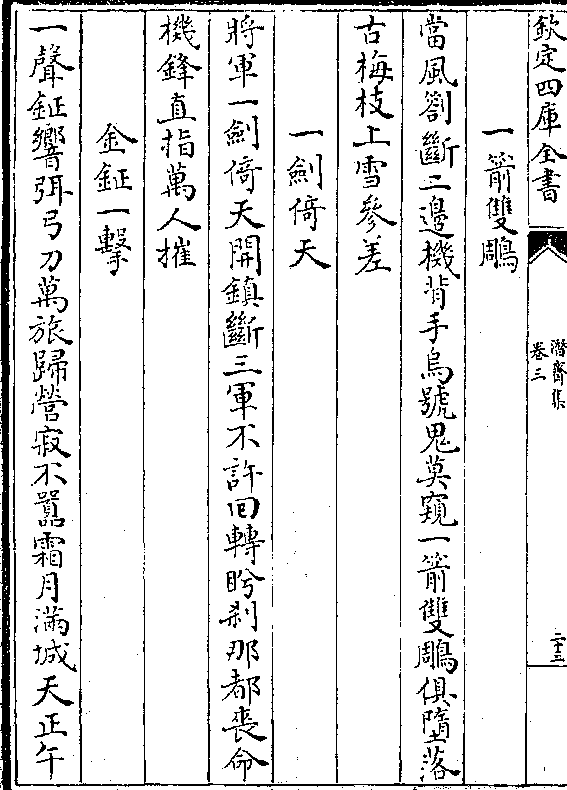 欽定四庫全書
潛齋集
卷三
二十三
一箭雙鵰
當風劄斷二邊機背手烏號鬼莫窺一箭雙鵰俱墮落
古梅枝上雪參差
一劍倚天
將軍一劍倚天開鎮斷三軍不許回轉盻刹那都喪命
機鋒直指萬人摧
金鉦一擊
一聲鉦響弭弓刀萬旅歸營寂不囂霜月滿城天正午